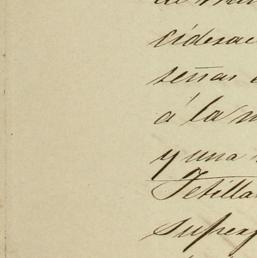 ciderac
señas
á la m
y una
Tetilla
superf